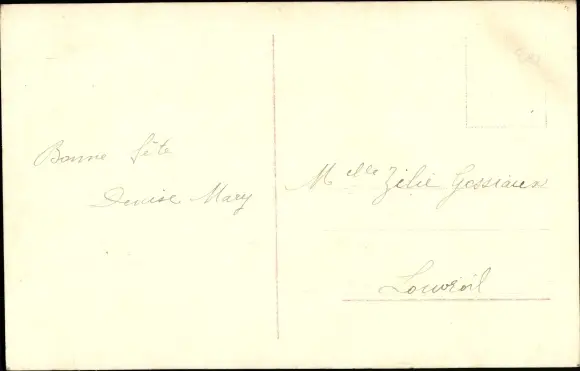 Bonne fête
Denise Mary
Melle Zélie Gossiaux
Louvroil